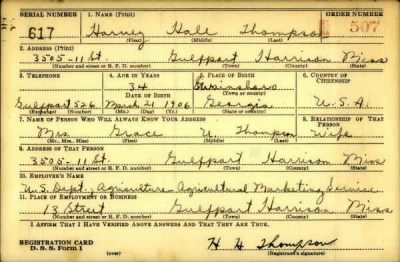 SERIAL NUMBER 1. NAME (Print) ORDER NUMBER
617 Harvey Hale Thompson 507
(First) (Middle) (Last)
2. ADDRESS (Print)
3505-11 St. Gulfport Harrison Miss
(Number and street or R. F. D. number) (Town) (County) (State)
3. TELEPHONE 4. AGE IN YEARS 5. PLACE OF BIRTH 6. COUNTRY OF CITIZENSHIP
34 Swainsboro
DATE OF BIRTH (Town or county)
Gulfport 526 March 21 1906 Georgia U.S.A.
(Exchange) (Number) (Mo.) (Day) (Yr.) (State or country)
7. NAME OF PERSON WHO WILL ALWAYS KNOW YOUR ADDRESS 8. RELATIONSHIP OF THAT PERSON
Mrs Grace U. Thompson Wife
(Mr., Mrs., Miss) (First) (Middle) (Last)
9. ADDRESS OF THAT PERSON
3505-11 St. Gulfport Harrison Miss
(Number and street or R. F. D. number) (Town) (County) (State)
10. EMPLOYER'S NAME
U.S. Dept., Agriculture Agricultural Marketing Service
11. PLACE OF EMPLOYMENT OR BUSINESS
13 Street Gulfport Harrison Miss
(Number and street or R. F. D. number) (Town) (County) (State)
I AFFIRM THAT I HAVE VERIFIED ABOVE ANSWERS AND THAT THEY ARE TRUE.
REGISTRATION CARD H H Thompson
D. S. S. Form 1 (over) (Registrant's signature)